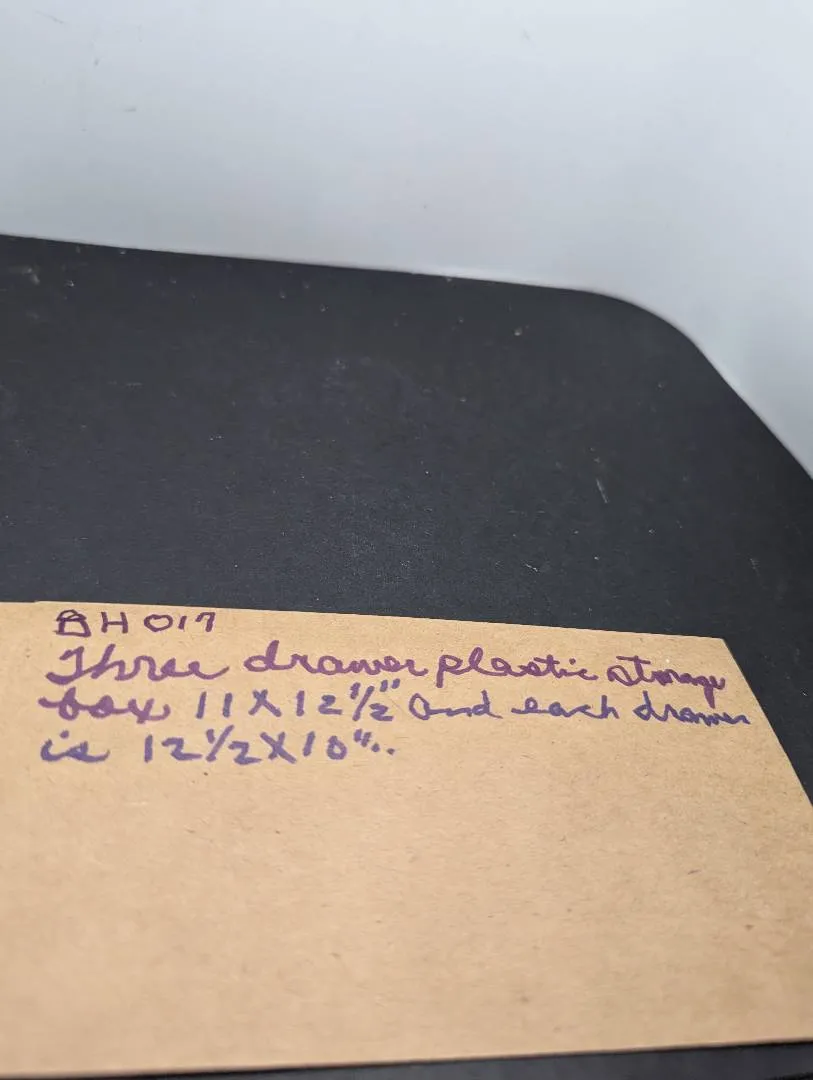 BH017
Three drawer plastic storage
box 11X12½" and each drawer
is 12½X10"..